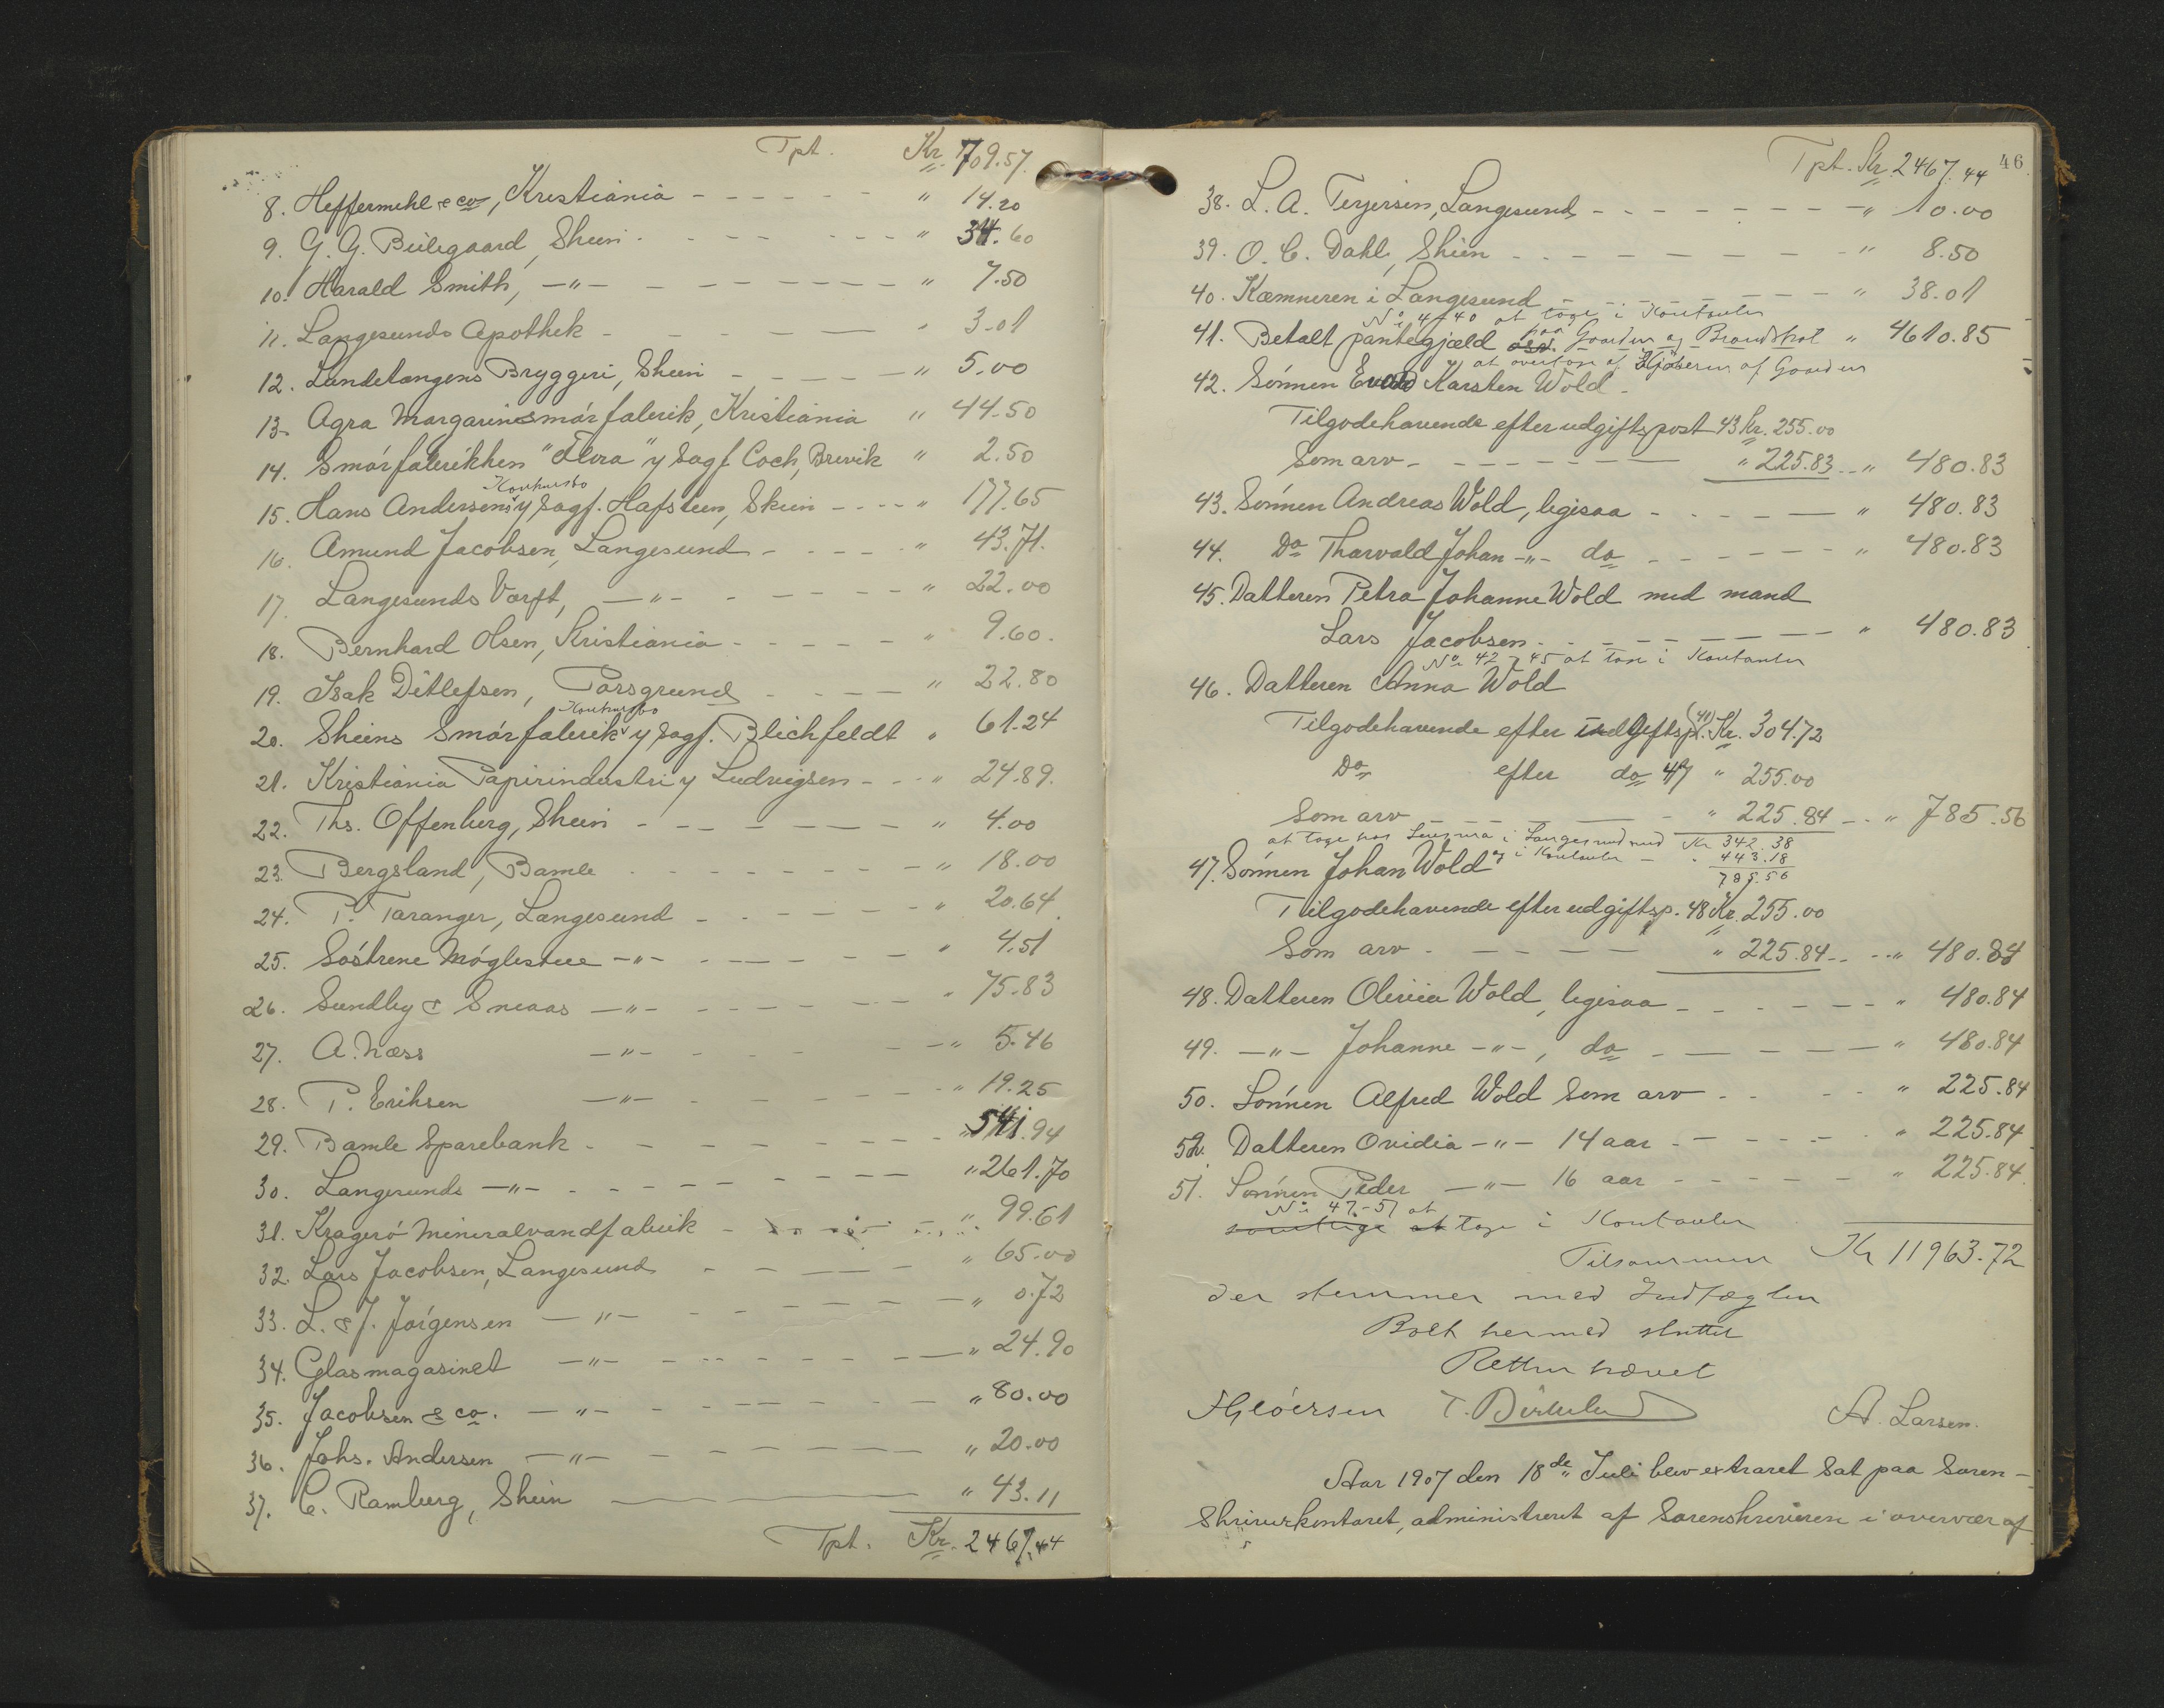 Tpt. Kr. 709.57
8. Heffermehl & co, Kristiania - - - - - " 14.20
9. G. G. Bülegaard, Skien - - - - - - " 34.60
10. Harald Smith, —"— - - - - - - " 7.50
11. Langesunds Apothek - - - - - " 3.01
12. Lundetangens Bryggeri, Skien - - - - - " 5.00
13. Agra Margarinsmørfabrik, Kristiania " 44.50
14. Smørfabrikken "Flora" v/ sagf. Coch, Brevik " 2.50
Konkursbo
15. Hans Andersens v/ sagf. Hafsteen, Skien - - - - " 177.65
16. Amund Jacobsen, Langesund - - - - - " 43.71.
17. Langesunds Værft, —"— - - - - - - " 22.00
18. Bernhard Olsen, Kristiania - - - - - " 9.60.
19. Isak Ditlefsen, Porsgrund - - - - " 22.80
Konkursbo
20. Skiens Smørfabrik v/ sagf. Blichfeldt " 61.24
21. Kristiania Papirindustri v/ Ludvigsen - - - " 24.89.
22. Ths. Offenberg, Skien - - - - - - - " 4.00
23. Bergsland, Bamle - - - - - - - " 18.00
24. P. Taranger, Langesund - - - - - " 20.64
25. Søstrene Møglestue —"— - - - - - " 4.51
26. Sundby & Sneaas —"— - - - - - - " 75.83
27. A. Næss —"— - - - - - " 5.46
28. P. Eriksen —"— - - - - - - " 19.25
29. Bamle Sparebank - - - - - - - - " 541.94
30. Langesunds —"— - - - - - - - - " 261.70
31. Kragerø Mineralvandfabrik - - - - - - " 99.61
32. Lars Jacobsen, Langesund - - - - - " 65.00
33. L. & J. Jørgensen —"— - - - - - - " 0.72
34. Glasmagasinet —"— - - - - - - - " 24.90
35. Jacobsen & co. —"— - - - - - - - " 80.00
36. Johs. Andersen —"— - - - - - - - " 20.00
37. C. Ramberg, Skien ——— " 43.11
Tpt. Kr. 2467.44
46.
Tpt. Kr. 2467.44
38. L. A. Terjersen, Langesund - - - - - - - " 10.00
39. O. C. Dahl, Skien - - - - - - - - " 8.50
40. Kæmneren i Langesund - - - - - - " 38.01
No 4-40 at tage i Kontanter
41. Betalt pantegjæld paa Gaarden og Brandstot " 4610.85
at overtage af Kjøberen af Gaarden
42. Sønnen Evald Karsten Wold -
Tilgodehavende efter udgiftspost 43 Kr. 255.00
Som arv - - - - - - " 225.83 - - " 480.83
43. Sønnen Andreas Wold, ligesaa - - - - - " 480.83
44. Do Thorvald Johan —"— do - - - - - - " 480.83
45. Datteren Petra Johanne Wold med mand
Lars Jacobsen - - - - - - - - " 480.83
No 42 - 45 at tage i Kontanter
46. Datteren Anna Wold
Tilgodehavende efter indgiftsp. (41) Kr. 304.72
Do efter do 47 " 255.00
Som arv - - - - - " 225.84 - - " 785.56
at tage hos i Langesund med Kr 342.38
og i Kontanter - " 443.18
785.56
47. Sønnen Johan Wold
Tilgodehavende efter udgiftsp. 48 Kr. 255.00
Som arv - - - - - " 225.84 - - - " 480.84
48. Datteren Olivia Wold, ligesaa - - - - - - " 480.84
49. —"— Johanne —"—, do - - - - - - " 480.84
50. Sønnen Alfred Wold Som arv - - - - " 225.84
52. Datteren Ovidia —"— 14 aar - - - - - - " 225.84
51. Sønnen Peder —"— 16 aar - - - - - - " 225.84
No 47-51 at
samtlige at tage i Kontanter
Tilsammen Kr 11963.72
der stemmer med Indtægten
Boet hermed sluttet
Retten hævet
A. Larsen.
Aar 1907 den 18de Juli blev extraret Sat paa Soren-
Skriverkontoret, administreret af Sorenskriveren i overvær af